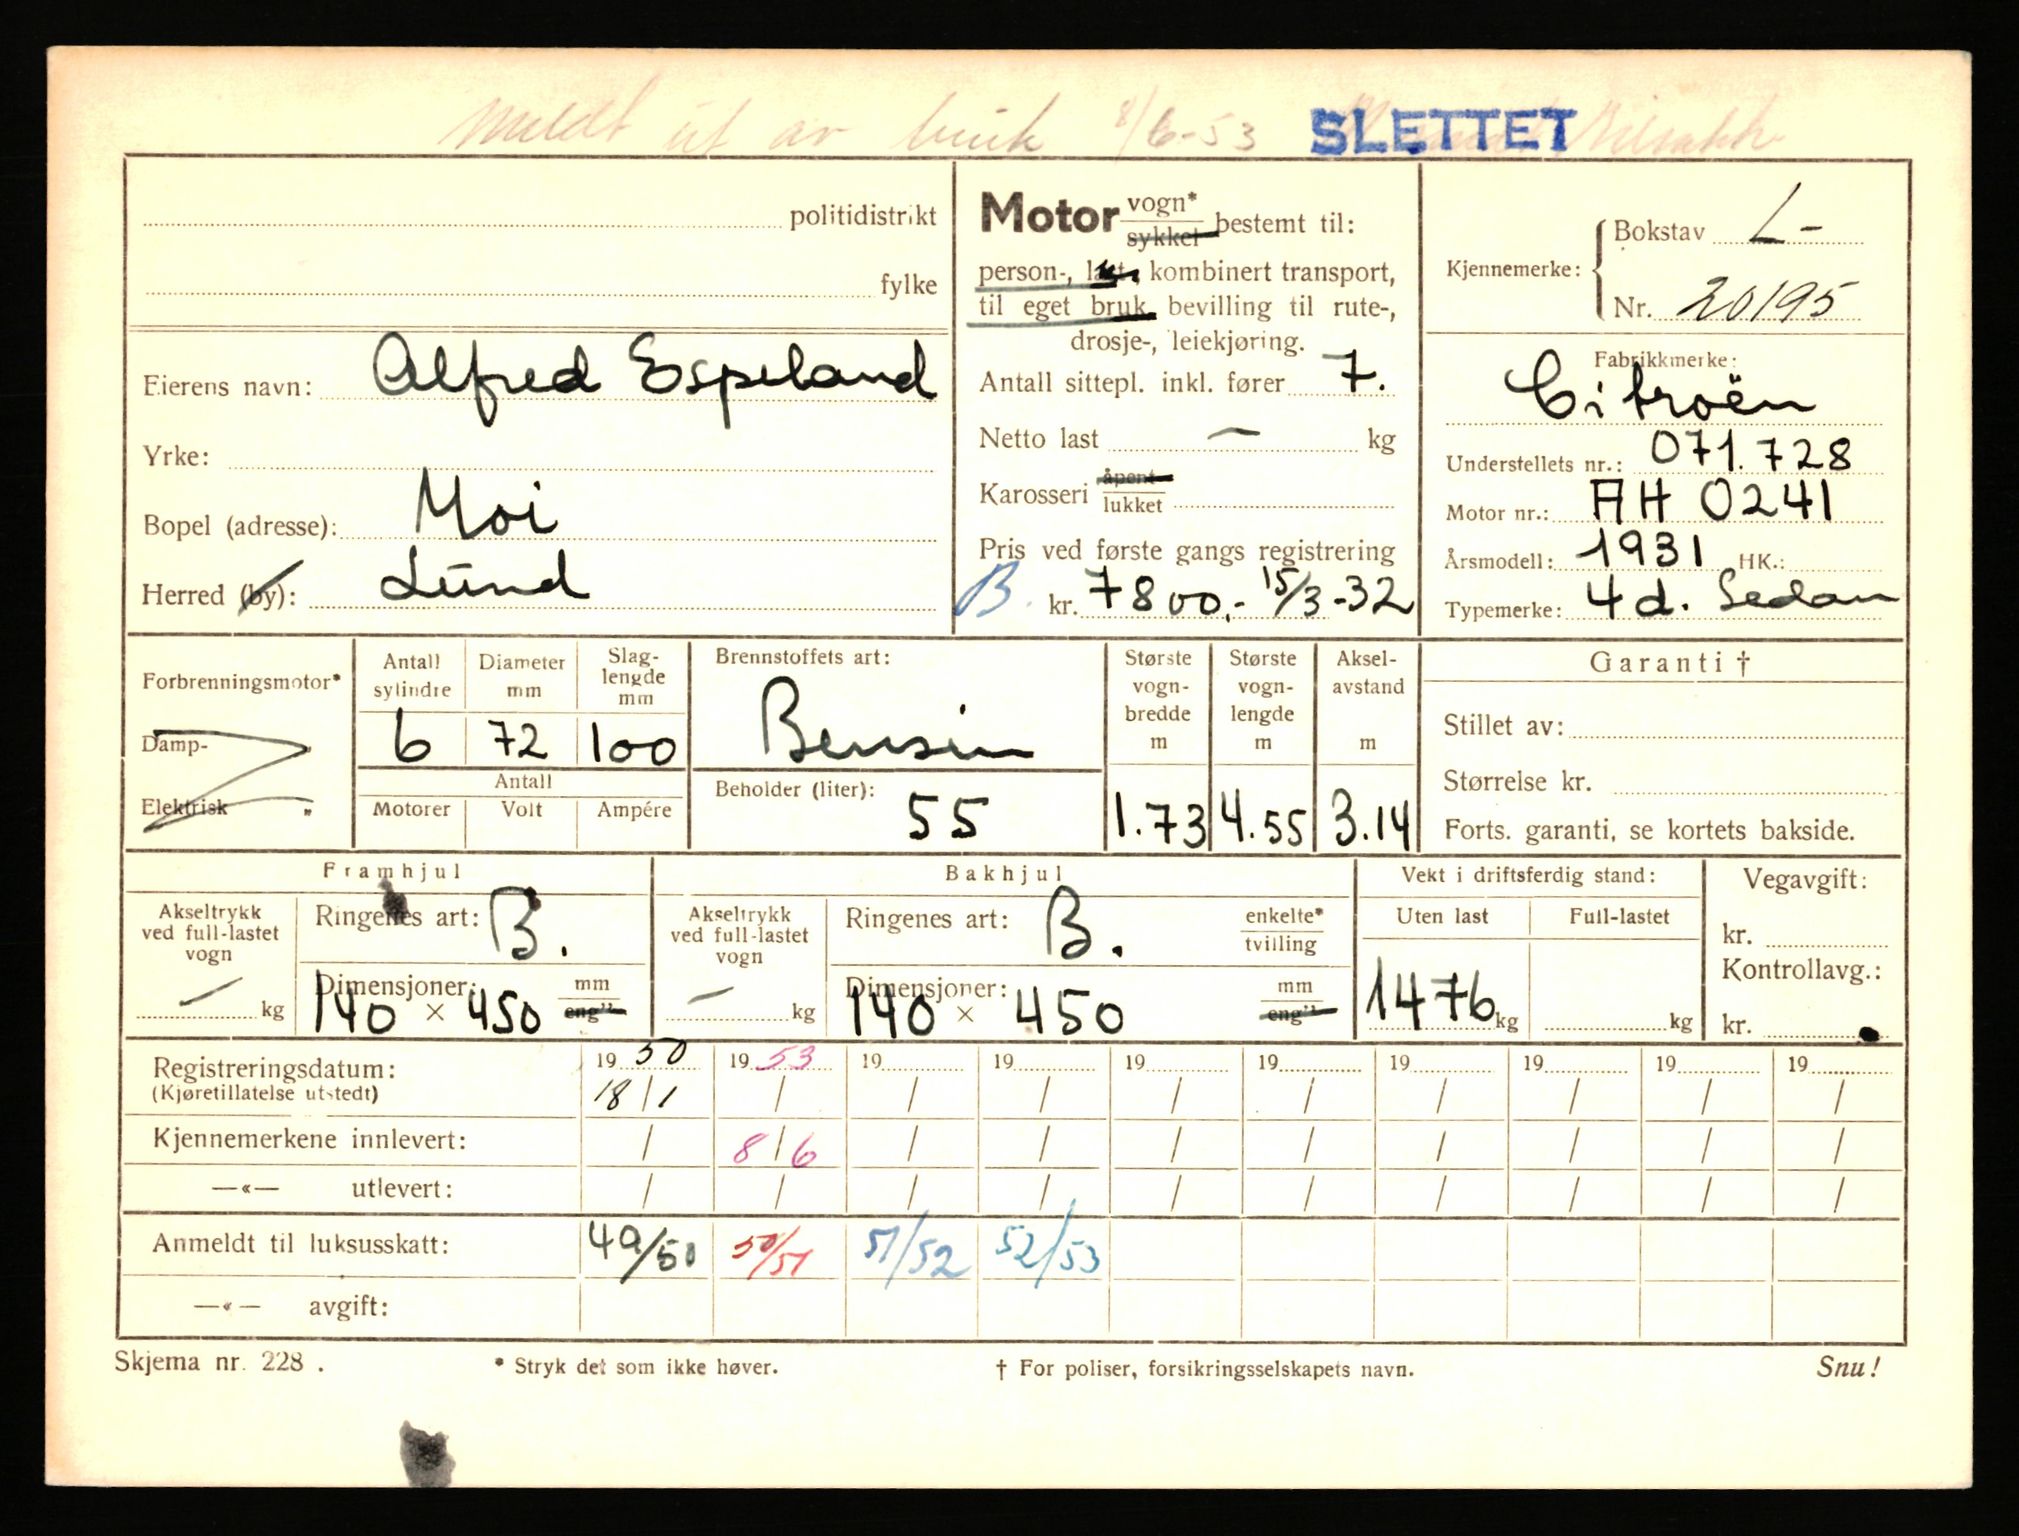 Meldt ut av bruk 8/6-53 SLETTET
politidistrikt
fylke
Eierens navn: Alfred Espeland
Yrke:
Bopel (adresse): Moi
Herred (by): Lund
Motor vogn* sykkel bestemt til:
person-, last-, kombinert transport,
til eget bruk, bevilling til rute-,
drosje-, leiekjøring.
Antall sittepl. inkl. fører 7.
Netto last — kg
Karosseri åpent lukket
Pris ved første gangs registrering
B. kr. 7800,- 15/3-32
Kjennemerke: Bokstav L-
Nr. 20195
Fabrikkmerke:
Citroën
Understellets nr.: 071.728
Motor nr.: AH 0241
Årsmodell: 1931 HK.:
Typemerke: 4 d. Sedan
Forbrenningsmotor*
Damp- "
Elektrisk "
Antall sylindre 6
Diameter mm 72
Slag-lengde mm 100
Antall
Motorer Volt Ampére
Brennstoffets art:
Bensin
Beholder (liter):
55
Største vogn-bredde m 1.73
Største vogn-lengde m 4.55
Aksel-avstand m 3.14
Garanti †
Stillet av:
Størrelse kr.
Forts. garanti, se kortets bakside.
Framhjul
Akseltrykk ved full-lastet vogn — kg
Ringenes art: B.
Dimensjoner: 140 × 450 mm eng"
Bakhjul
Akseltrykk ved full-lastet vogn — kg
Ringenes art: B. enkelte* tvilling
Dimensjoner: 140 × 450 mm eng"
Vekt i driftsferdig stand:
Uten last Full-lastet
1476 kg kg
Vegavgift:
kr.
Kontrollavg.:
kr.
Registreringsdatum: 19 50 19 53 19 19 19 19 19 19 19 19
(Kjøretillatelse utstedt) 18/1 / / / / / / / / /
Kjennemerkene innlevert: / 8/6 / / / / / / / /
—«— utlevert: / / / / / / / / / /
Anmeldt til luksusskatt: 49/50 50/51 51/52 52/53
—«— avgift:
Skjema nr. 228 . * Stryk det som ikke høver. † For poliser, forsikringsselskapets navn. Snu!